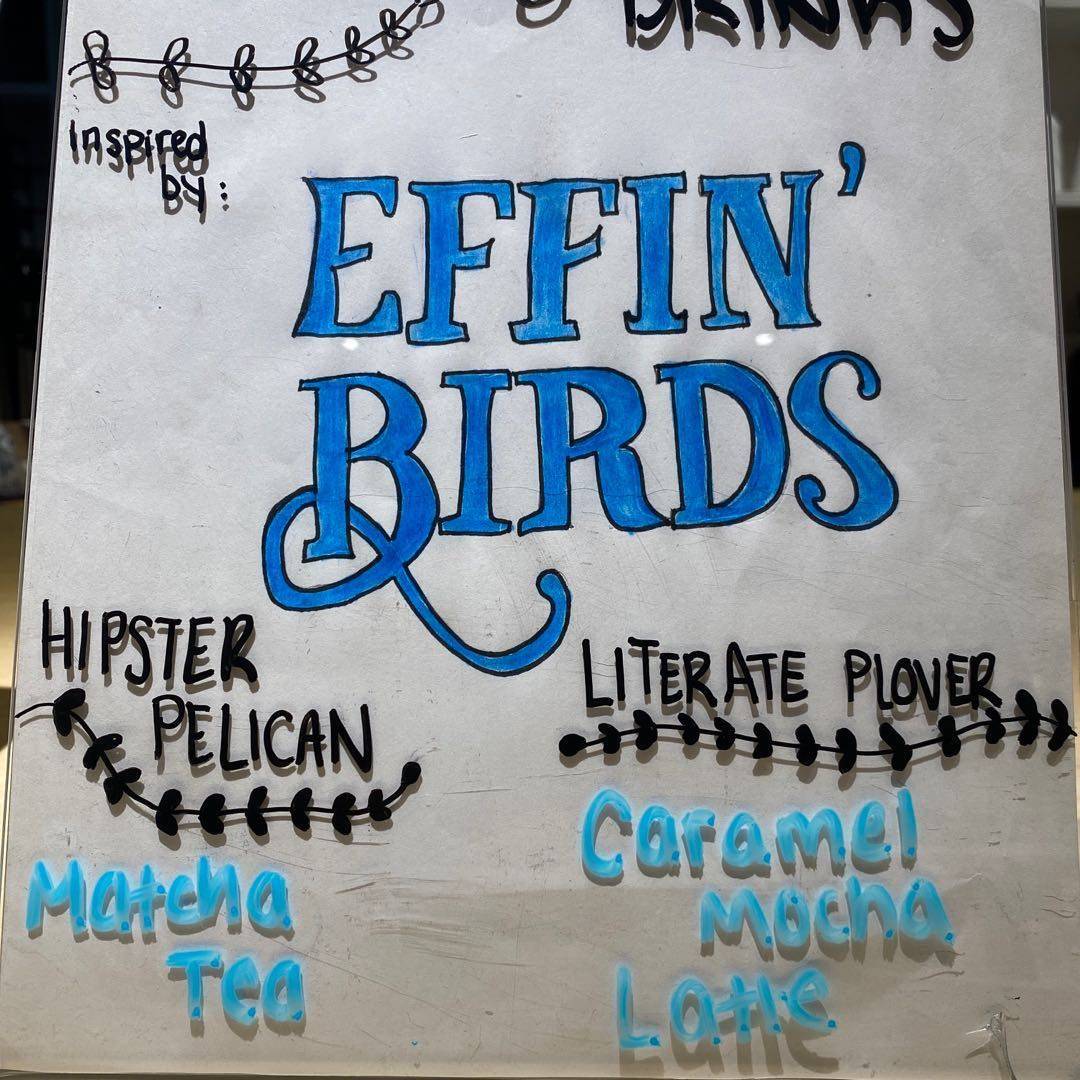 DRINKS
Inspired
by:
EFFIN'
BIRDS
HIPSTER
PELICAN
LITERATE PLOVER
Matcha
Tea
Caramel
Mocha
Latte